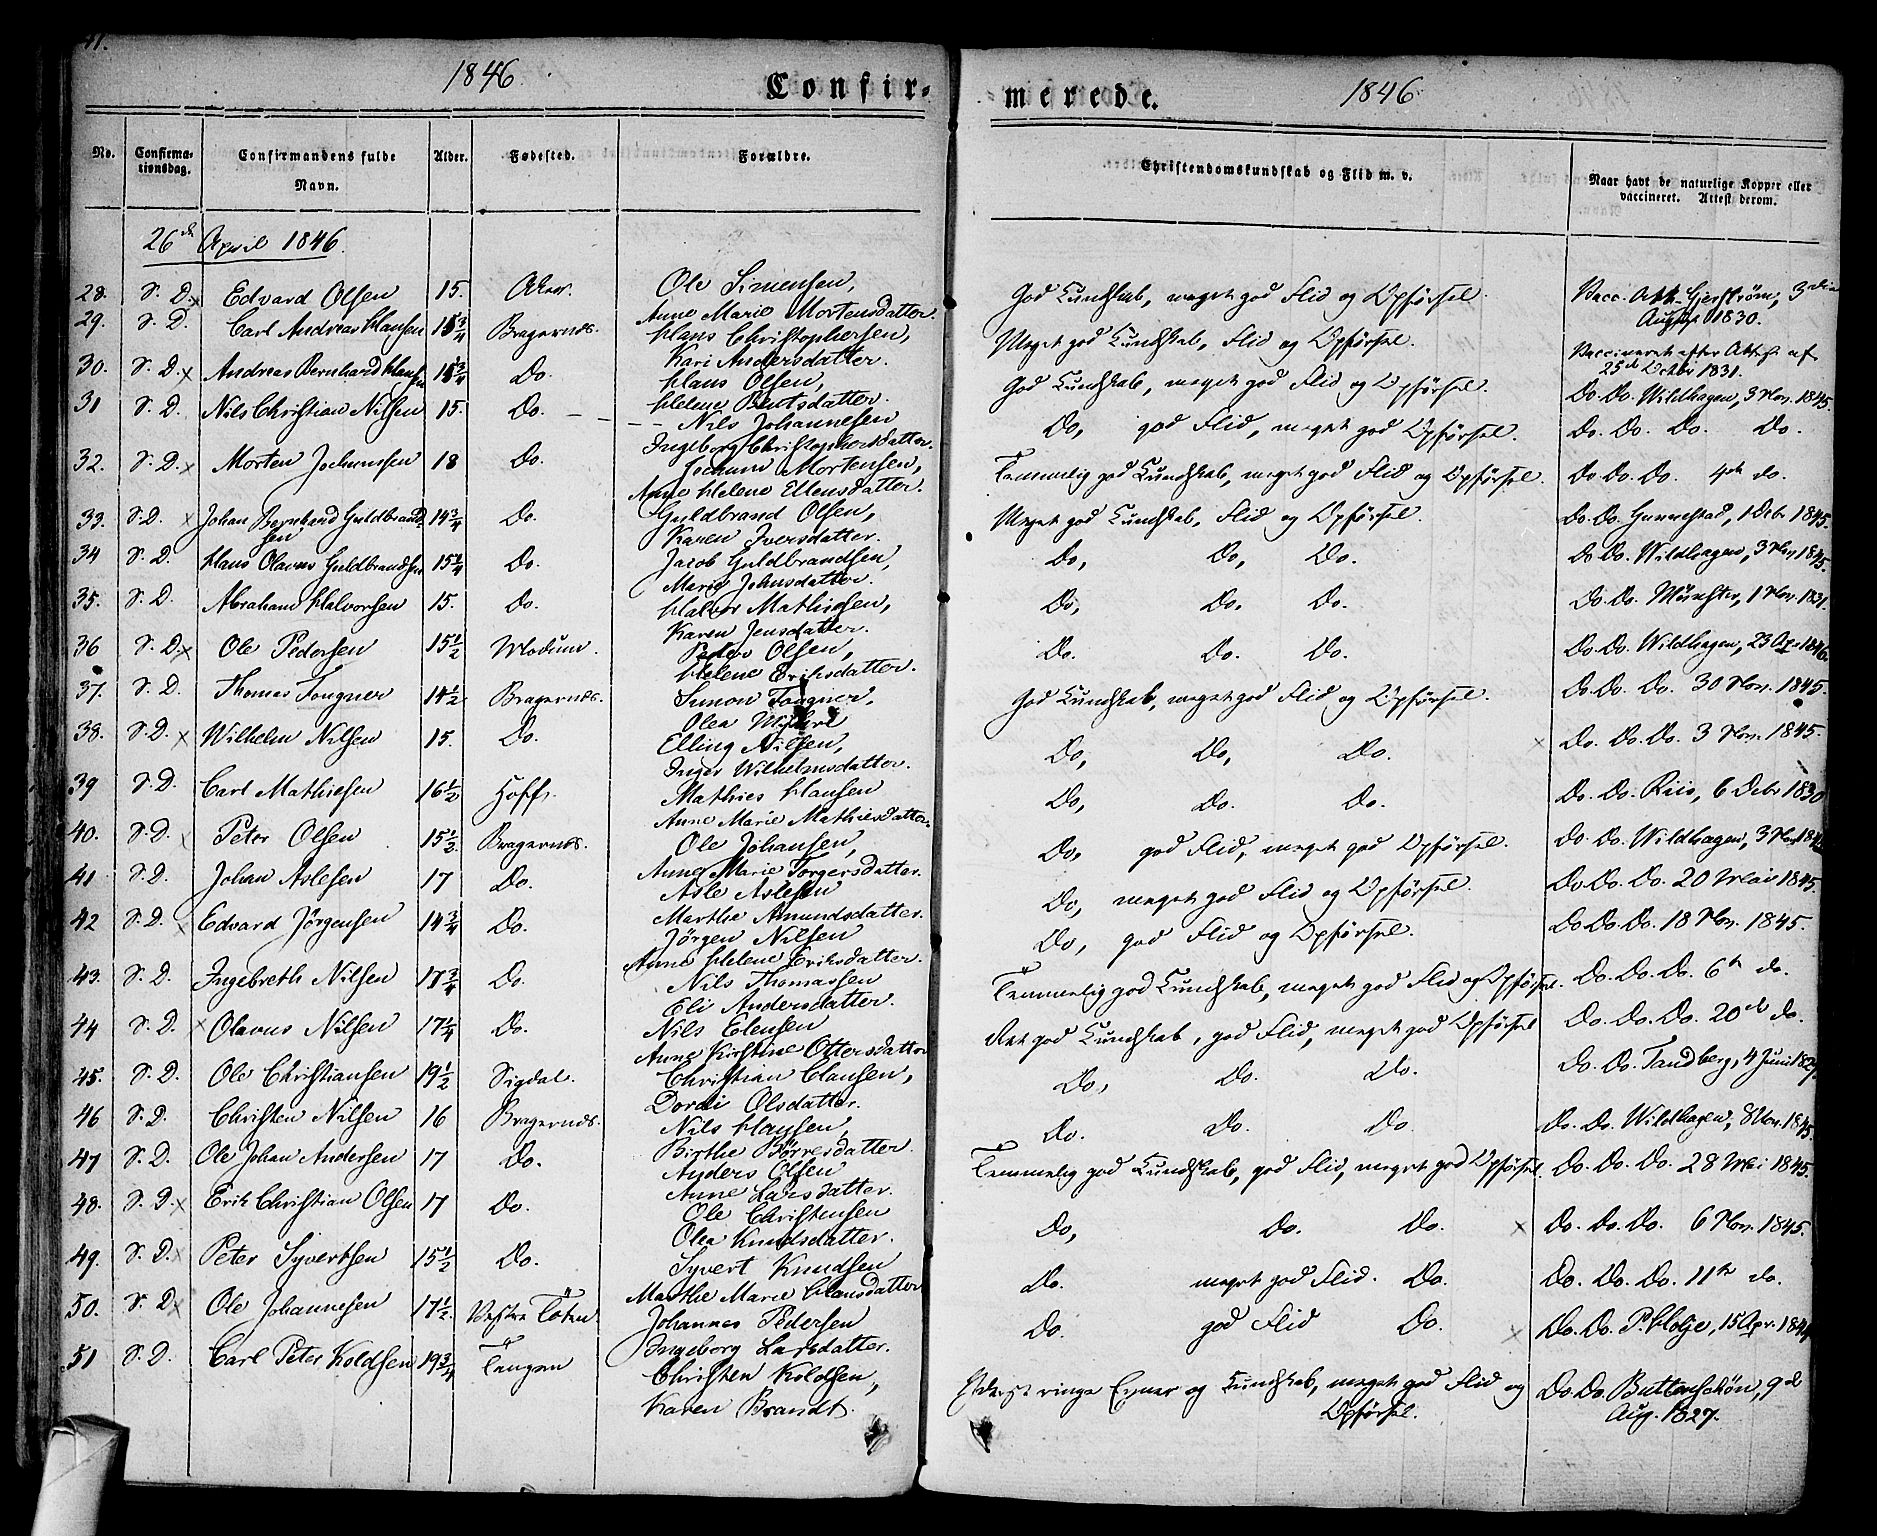 41.
1846.
Confir-
No.
Confirma-
tionsdag.
Confirmandens fulde
Navn.
Alder.
Fødested.
Forældre.
26de April 1846.
28. S. D. x Edvard Olsen 15. Aker. Ole Simensen,
Anne Marie Mortensdatter.
29. S. D. Carl Andreas Hansen 15 3/4 Bragernæs. Hans Christophersen,
Kari Andersdatter.
30. S. D. x Andreas Bernhard Hansen 15 3/4 Do. Hans Olsen,
Helene Berntsdatter.
31 S. D. Nils Christian Nilsen 15. Do. – – – Nils Johannesen
Ingeborg Christophersdatter.
32. S. D. x Morten Jochumsen 18 Do. Jochum Mortensen,
Anne Helene Ellensdatter.
33. S. D. x Johan Bernhard Guldbrand
sen 14 3/4 Do. Guldbrand Olsen,
Karen Iversdatter.
34 S. D. Hans Olavus Guldbrandsen 15 1/4 Do. Jacob Guldbrandsen,
Marie Johnsdatter.
35. S. D. Abraham Halvorsen 15. Do. Halvor Mathisen,
Karen Jensdatter.
36 S. D. x Ole Pedersen 15 1/2 Modum. Peder Olsen,
Helene Eriksdatter.
37. S. D. Thomas Tougner 14 1/2 Bragernæs. Simon Tougner,
Olea
38. S. D. x Wilhelm Nilsen 15. Do. Elling Nilsen,
Inger Wilhelmsdatter.
39 S. D. Carl Mathiesen 16 1/2 Hoff. Mathies Hansen
Anne Marie Mathiesdatter.
40. S. D. Peter Olsen 15 1/2. Bragernæs. Ole Johansen,
Anne Marie Torgersdatter.
41 S. D. Johan Aslesen 17 Do. Asle Aslesen
Marthe Amundsdatter.
42 S. D. x Edvard Jørgensen 14 3/4 Do. Jørgen Nilsen
Anne Helene Eriksdatter.
43. S. D. Ingebreth Nilsen 17 3/4 Do. Nils Thomassen
Eli Andersdatter.
44 S. D. x Olavus Nilsen 17 1/4 Do. Nils Elensen
Anne Kirstine Ottersdatter
45. S. D. Ole Christiansen 19 1/2 Sigdal. Christian Clausen,
Dordi Olsdatter.
46 S. D. Christen Nilsen 16 Bragernæs. Nils Hansen,
Birthe Børresdatter.
47 S. D. Ole Johan Andersen 17 Do. Anders Olsen
Anne Larsdatter.
48. S. D. x Erik Christian Olsen 17 Do. Ole Christensen
Olea Knudsdatter.
49. S. D. x Peter Syvertsen 15 1/2 Do. Syvert Knudsen
Marthe Marie Hansdatter
50. S. D. x Ole Johannesen 17 1/2. Vestre Toten Johannes Pedersen
Ingeborg Larsdatter.
51 S. D. Carl Peter Koldsen 19 3/4 Tangen Christen Koldsen,
Karen Brandt.
merede.
1846.
Christendomskundskab og Flid m. v.
Naar havt de naturlige Kopper eller
vaccineret. Attest derom.
God Kundskab, meget god Flid og Opførsel. Vacc. Att. Gjerstrøm, 3die
August 1830.
Meget god Kundskab, Flid og Opførsel. Vaccineret efter Attest af
25de Octbr 1831.
God Kundskab, meget god Flid og Opførsel. Do. Do. Wildhagen, 3 Nov. 1845.
Do, god Flid, meget god Opførsel. Do. Do. Do. Do.
Temmelig god Kundskab, meget god Flid og Opførsel. Do. Do. Do. 4de do.
Meget god Kundskab, Flid og Opførsel. Do. Do. Gunnestad, 1 Debr 1845.
Do, Do, Do. Do. Do. Wildhagen, 3 Nov. 1845.
Do, Do, Do. Do. Do. Münster, 1 Nov. 1831.
Do. Do. Do. Do. Do. Wildhagen, 23 Apr. 1846.
God Kundskab, meget god Flid og Opførsel. Do. Do. Do. 30 Nov. 1845.
Do, Do, Do. x Do. Do. Do. 3 Nov. 1845.
Do, Do. Do. Do. Do. Riis, 6 Debr 1830
Do, god Flid, meget god Opførsel. Do. Do. Wildhagen, 3 Nov. 1845
Do, meget god Flid og Opførsel. Do. Do. Do. 20 Mai 1845.
Do, god Flid og Opførsel. Do. Do. Do. 18 Nov. 1845.
Temmelig god Kundskab, meget god Flid og Opførsel. Do. Do. Do. 6te do.
Ret god Kundskab, god Flid, meget god Opførsel Do. Do. Do. 20de do.
Do, Do. Do. Do. Do. Tandberg, 4 Juni 1827.
Do. Do. Do. Do. Do. Wildhagen, 8 Nov. 1845.
Temmelig god Kundskab, god Flid, meget god Opførsel. Do. Do. Do. 28 Mai 1845.
Do, Do. Do. x Do. Do. Do. 6 Nov. 1845.
Do. meget god Flid. Do. Do. Do. Do. 11te do.
Do. god Flid Do. x Do. Do. P. Holje, 15 Apr. 1844
Yderst ringe Evner og Kundskab, meget god Flid og
Opførsel. Do. Do. Buttenschön, 9de
Aug. 1827.